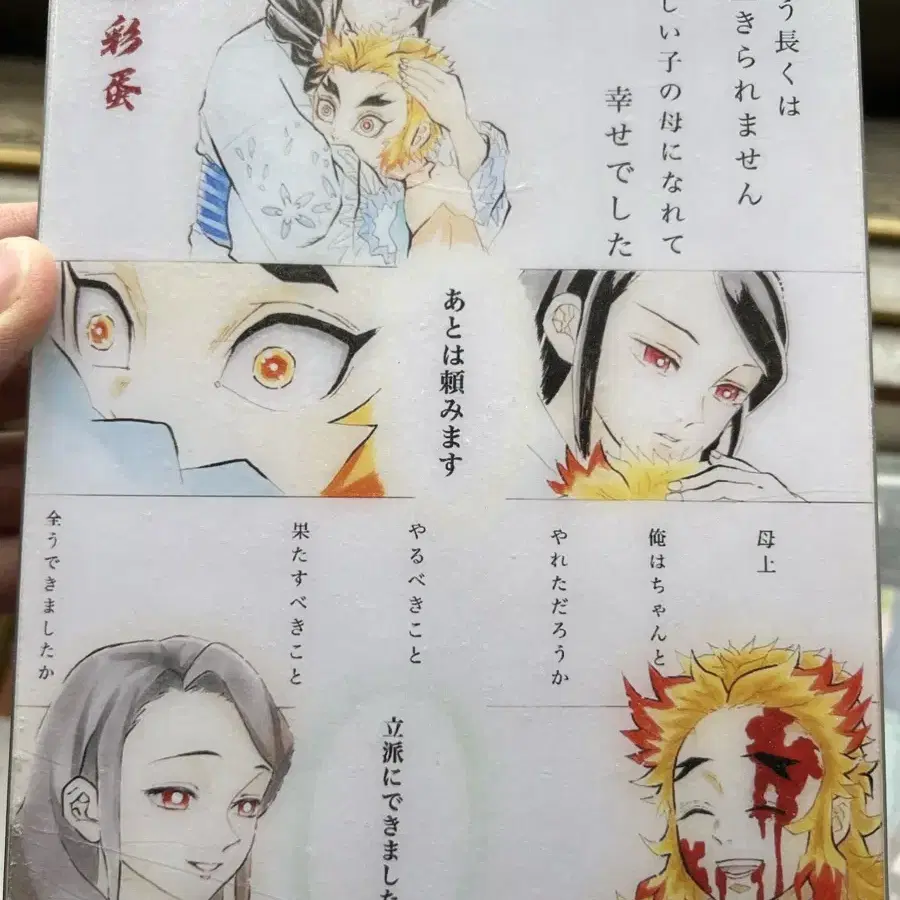 う長くは
きられません
しい子の母になれて
幸せでした
彩蛋
あとは頼みます
母上
俺はちゃんと
やれただろうか
やるべきこと
果たすべきこと
全うできましたか
立派にできました